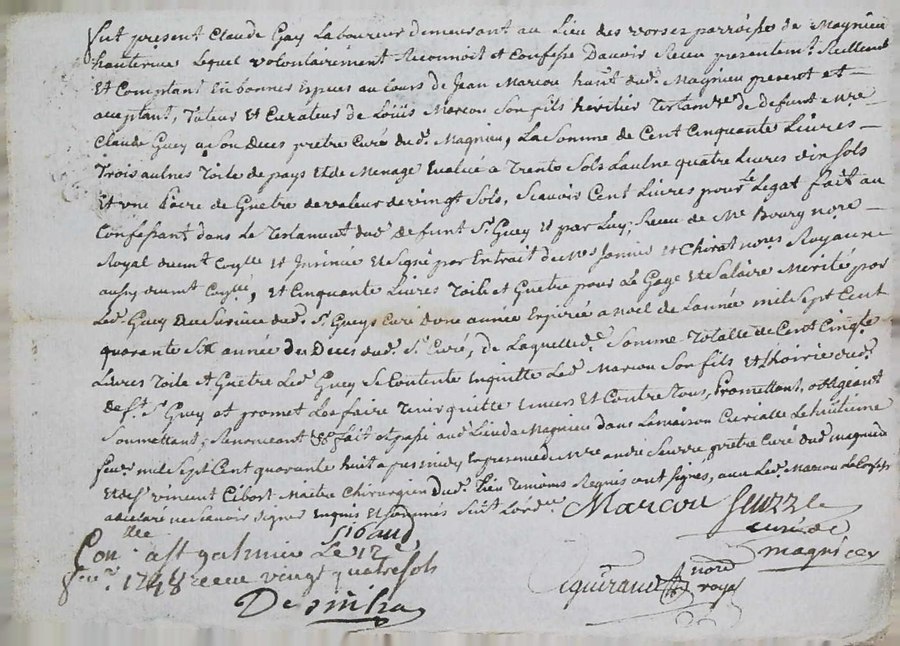 fut present Claude Gay Laboureur demeurant au Lieu des vorses parroisse de Magnieu
hauterive Lequel volontairement Reconnoit et confesse Davoir Receu presentemt. Reellemt
Et Comptant En bonnes Especes au cours de Jean Marcou hant. dud. Magnieu present et
acceptant, Tuteur et Curateur de Loüis Marcou Son fils heritier Testamre de defunt Mre
Claude Guey a Son Deces pretre Curé dud. Magnieu, La Somme de Cent Cinquante Livres
Trois aulnes Toile de pays Et de Menage Evalué a Trente Sols Laulne quatre Livres dix Sols
Et une paire de Guetre de valeur de vingt Sols, Scavoir Cent Livres pour Le Legat fait au
Confessant dans Le Testament dud. defunt Sr. Guey Et par Luy, Receu de Me Bourg nore
Royal duemt. Cogllé et Insinué Et Signé par Extrait de Mes Janvier et Chirat nores Royaux
aussy duemt Cogllé, et Cinquante Livres Toile et Guetre pour Le Gage Et Salaire Merité par
Led. Guey au Service dud. Sr. Gueys Curé d'une année Expirée a noel de Lannée mil Sept Cent
quarante Six année du Deces dud. Sr. Curé, de Laquelle d. Somme Totalle de Cent Cinqte
Livres Toile et Guetre Led. Guey Se Contente En quitte Led. Marcou Son fils et L'hoirie dud.
deft. Sr. Guey et promet Les faire Tenir quitte Envers Et Contre Tous, Promettant, obligeant
Soumettant, Renonceant &a fait et passé aud. Lieu de Magnieu dans La maison Curialle Le huitieme
fevr. mil Sept Cent quarante huit apres midy En presence de Mre andré Seuzze pretre Curé dud. magnieu
Et de Sr. vincent Cibert Maitre Chirurgien dud. Lieu Temoins Requis ont signes, avec Led. Marcou Le Confesst.
a declaré ne Scavoir Signer Enquis Et Sommés Suit. Lord.ce Marcou Seuzze
curé de
magnieu
Conllé a St galmier Le 12e
fevr. 1748 Receu vingt quatre sols
nore
royal